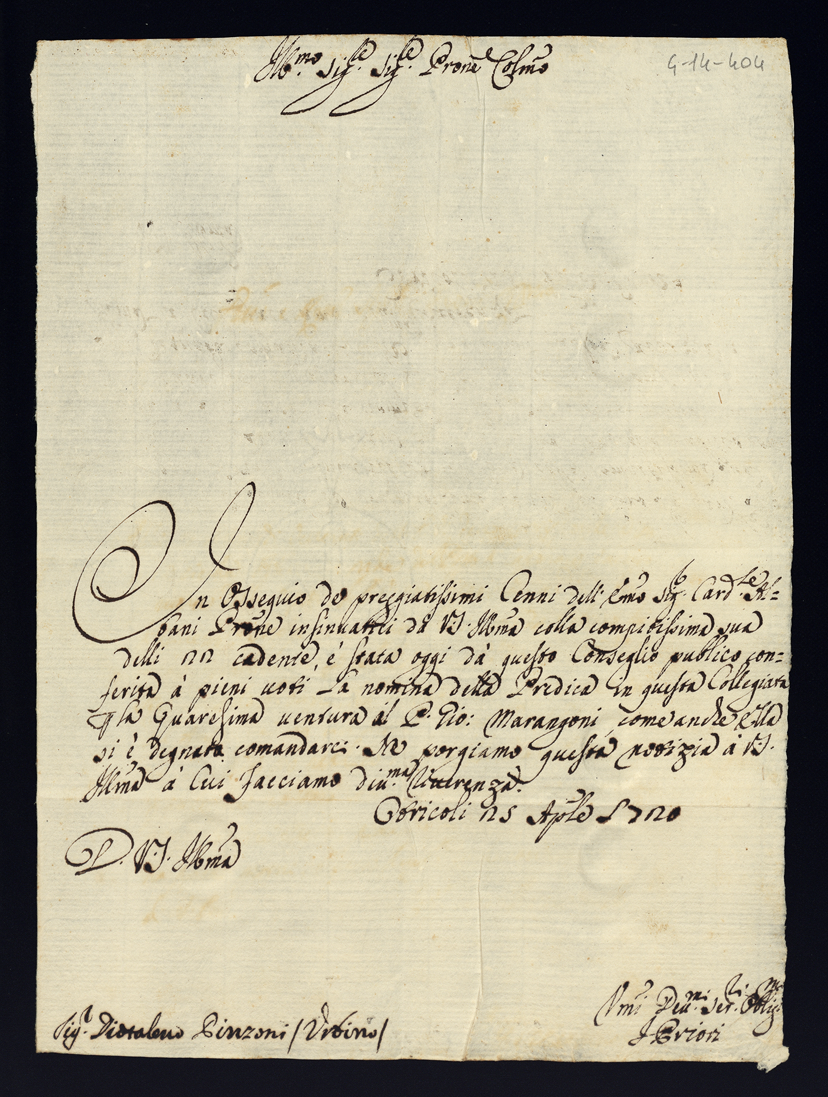 Ill.mo Sig.re Sig.re Prone Colmo
4-14-404
In Osseguio de preggiatissimi Cenni dell'Emo Sig. Card.le Al=
bani Prone insinuattici da V.S. Illma colla compitissima sua
delli 22 cadente, è stata oggi dà questo Conseglio publico con=
ferita à pieni voti la nomina della Predica in questa Collegiata
p la Quaresima ventura al P. Gio: Marangoni, come anche Ella
si è degnata comandarci. Ne porgiamo questa notizia à V.S.
Illma à Cui facciamo diu.ma riverenza.
Otricoli 25 Aprle 1720
D. V.S. Illma
Umi Deu.mi Ser.ri Oblig.mi
I Priori
Sig.r Diotaleuo Pinzoni /Urbino/